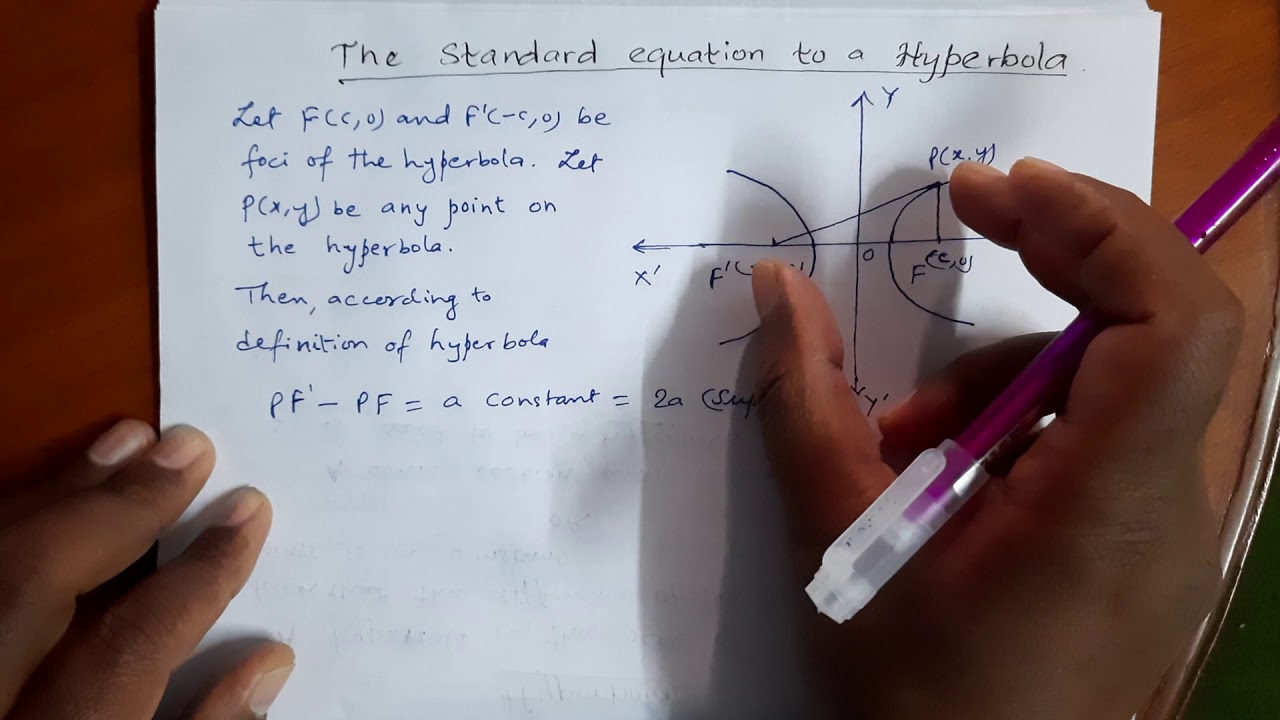 The Standard equation to a Hyperbola.
Let F(c,0) and F'(-c,0) be
foci of the hyperbola. Let
P(x,y) be any point on
the hyperbola.
Then, according to
definition of hyperbola
PF' - PF = a constant = 2a
Y
P(x,y)
X'
F'
O
F(c,0)
Y'